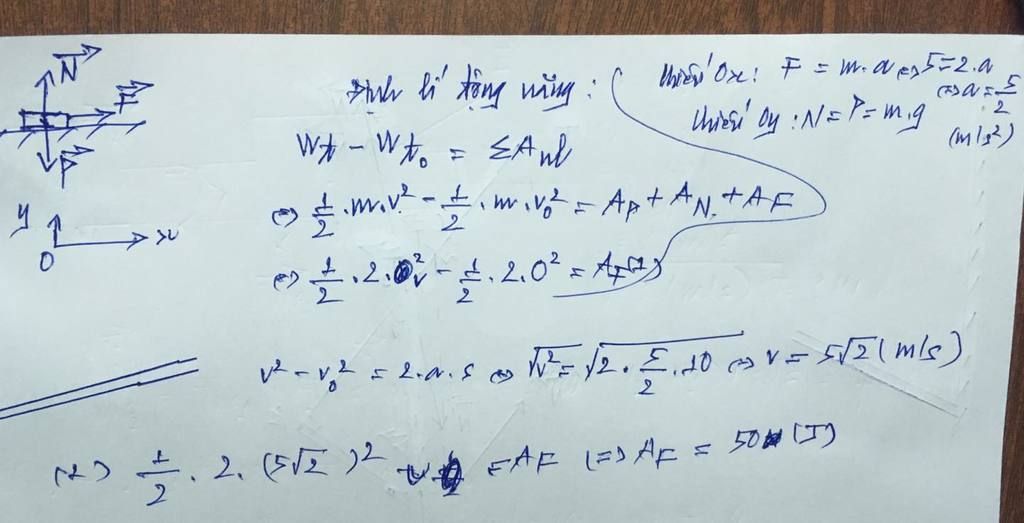 N
F
P
y
x
O
Định lí động năng:
Wđ - Wđ₀ = ΣAnl
⇔ 1/2 . m . v² - 1/2 . m . v₀² = A_P + A_N + A_F
⇔ 1/2 . 2 . v² - 1/2 . 2 . 0² = A_F (1)
Chiếu Ox: F = m.a ⇔ 5 = 2.a
⇔ a = 5/2
(m/s²)
Chiếu Oy: N = P = m.g
v² - v₀² = 2.a.s ⇔ √v² = √(2 . 5/2 . 10) ⇔ v = 5√2 (m/s)
(1) 1/2 . 2 . (5√2)² = A_F ⇔ A_F = 50 (J)